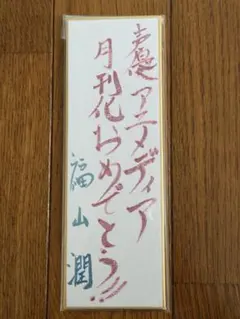 声優アニメディア
月刊化おめでとう!!
福山潤